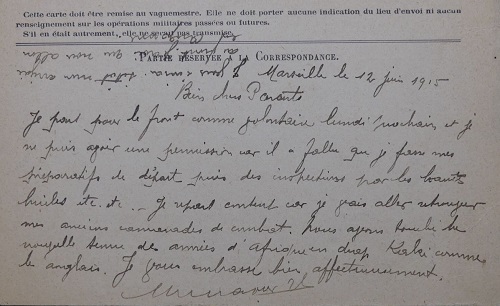 Cette carte doit être remise au vaguemestre. Elle ne doit porter aucune indication du lieu d'envoi ni aucun
renseignement sur les opérations militaires passées ou futures.
S'il en était autrement, elle ne serait pas transmise.
PARTIE RÉSERVÉE A LA CORRESPONDANCE.
Marseille le 12 juin 1915
Bien chers Parents
Je part pour le front comme volontaire lundi prochain et je
ne puis avoir une permission car il a fallu que je fasse mes
préparatifs de départ puis des inspections par les hautes
huiles etc. etc. Je repart content car je vais aller retrouver
mes anciens camarades de combat. Nous avons touché la
nouvelle tenue des armées d'Afrique en drap Kaki comme
les anglais. Je vous embrasse bien affectueusement.